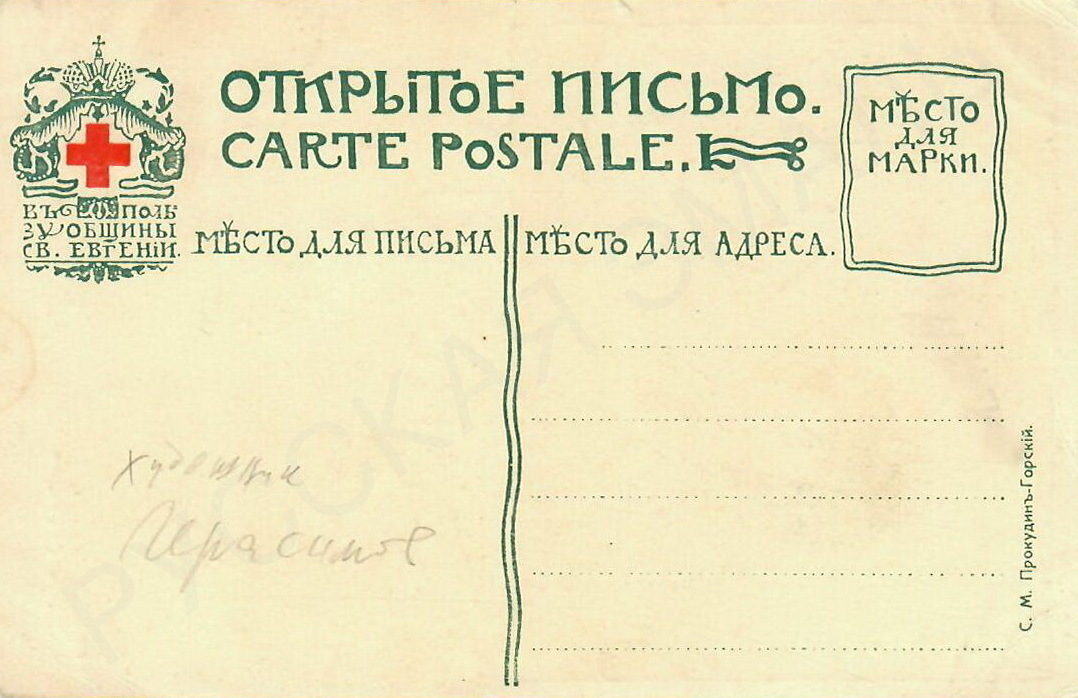 ОТКРЫТОЕ ПИСЬМО.
CARTE POSTALE.
МѢСТО
ДЛЯ
МАРКИ.
ВЪ ПОЛЬ
ЗУ ОБЩИНЫ
СВ. ЕВГЕНІИ.
МѢСТО ДЛЯ ПИСЬМА
МѢСТО ДЛЯ АДРЕСА.
художник
Герасимов
С. М. Прокудинъ-Горскій.
РУССКАЯ ЭМА